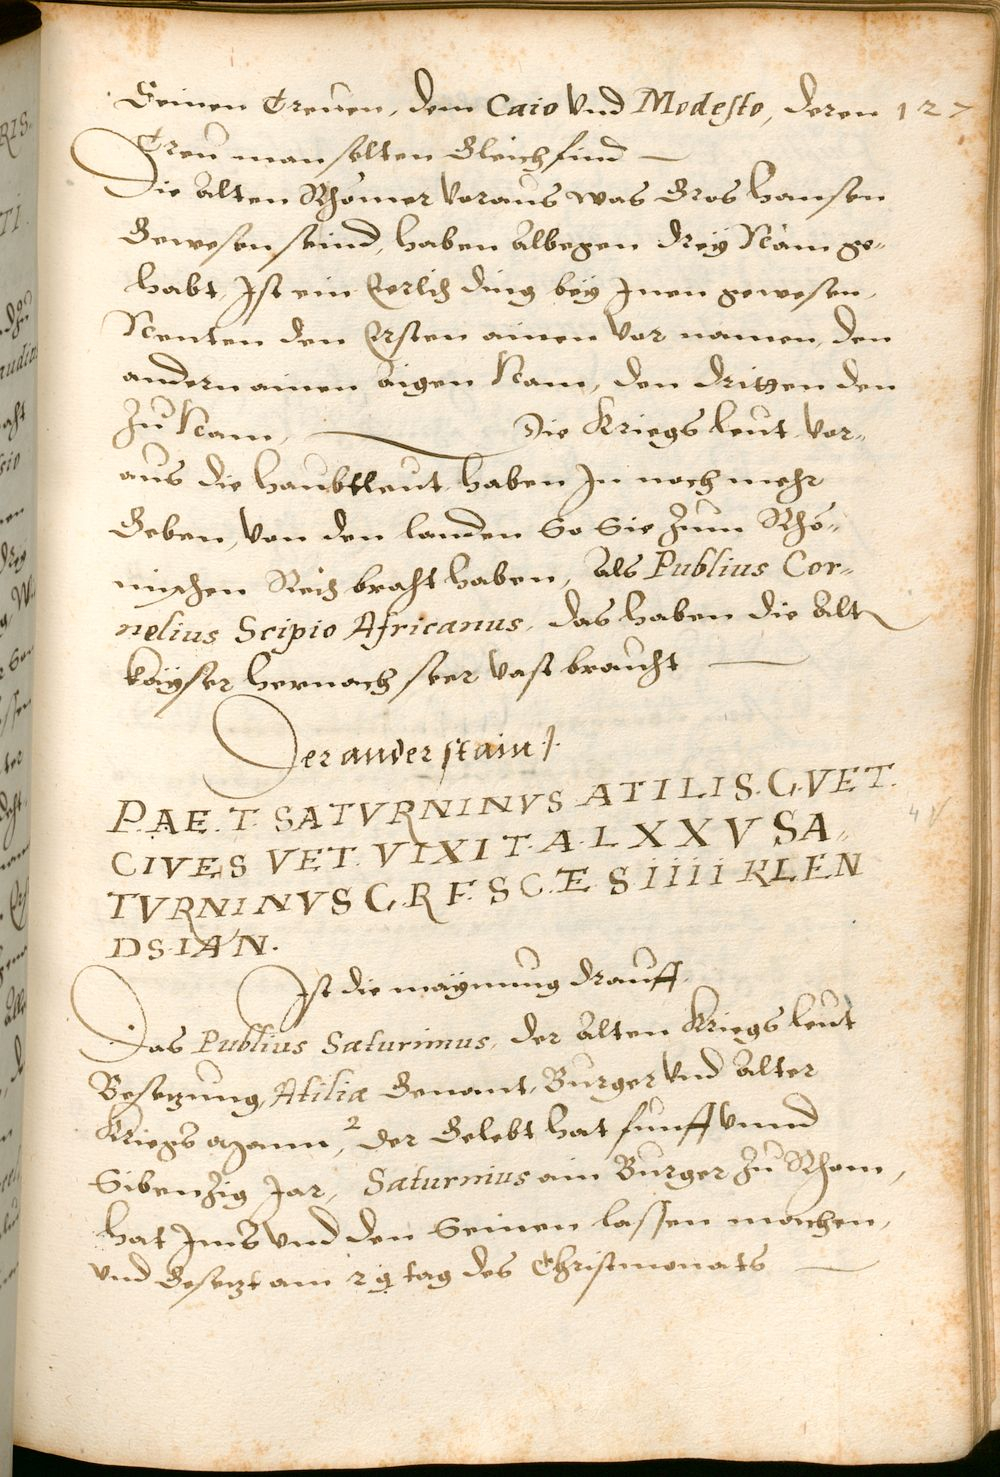 Seinen Treuen, dem Caio Vnd Modesto, deren 127
Treu man selten Gleich find
Die Alten Rhömer Voraus was Gros hansen
Gewesen seind, haben Albegen drey Näm ge-
habt, Ist ein Eerlich ding bey Inen gewesen,
Nenten den Ersten ainen Vor namen, den
andern ainen aigen Nam, den dritten den
Zu Nam, Die Kriegs leut Vor-
aus die haubtleut haben In noch mehr
Geben, Von den landen So Sie Zum Rhö-
mischen Reich braht haben, Als Publius Cor-
nelius Scipio Africanus, das haben die Alt
kayser hernach seer Vast braucht
Der ander stain
P.AE.T. SATVRNINVS ATILIS.C.VET.
CIVES VET. VIXIT.A.LXXV SA-
TVRNINVS C.R F.S C.E. S IIII KLEN
DS.IAN.
Ist die maynung drauff
Das Publius Saturinus, der Alten Kriegs leut
Besetzung, Atiliæ Genant, Burger Vnd Alter
Kriegs Mann, der Gelebt hat funff Vnnd
Sibenzig Jar, Saturnius ain Burger Zu Rhom,
hat Ims Vnd den Seinen lassen machen,
Vnd Gesetzt am 29 tag des Christmonats